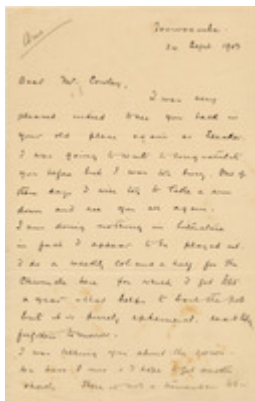 Ans
Toowoomba
20 Sept 1903
Dear Mr. Cowley,
I was very
pleased indeed to see you back in
your old place again as leader.
I was going to write to congratulate
you before but I was too busy. One of
these days I mean to take a run
down and see you all again.
I am doing nothing in literature
in fact I appear to be played out.
I do a weekly column & a half for the
Chronicle here for which I get
a year which helps to boil the pot
but it is purely ephemeral,
forgotten tomorrow.
I was telling you about the
we have I now & I hope to get another
There is not a